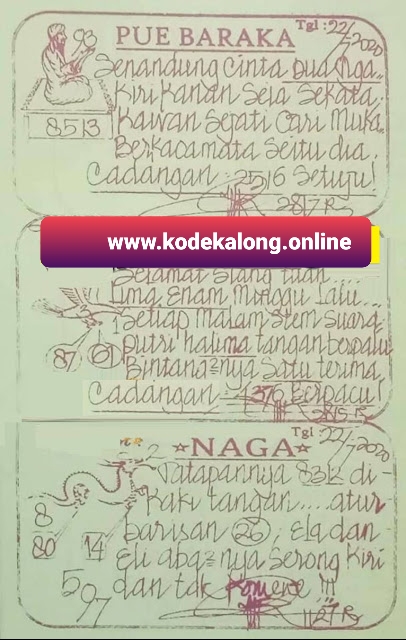 PUE BARAKA
Tgl : 22/7-2020
93
8513
Senandung Cinta Dua Tiga..
Kiri Kanan Seia Sekata,
Kawan Sejati Cari Muka
Berkacamata Seitu dia.
Cadangan : 2516 Setuju!
2817 Rs
www.kodekalong.online
Selamat Siang tuan....
Lima Enam Minggu Lalu....
Setiap Malam Stem Suara
putri halima tangan berpalu
Bintang²nya Satu terima,
Cadangan = 1376 Berpacu!
87
61
2815 Rs
NAGA
Tgl : 22/7-2020
2
Tatapannya 8312 di-
Kaki tangan....atur
barisan 26, Ela dan
Eli aba²nya Serong Kiri
dan tak Komene !!!
8
80
14
507
1127 Rs